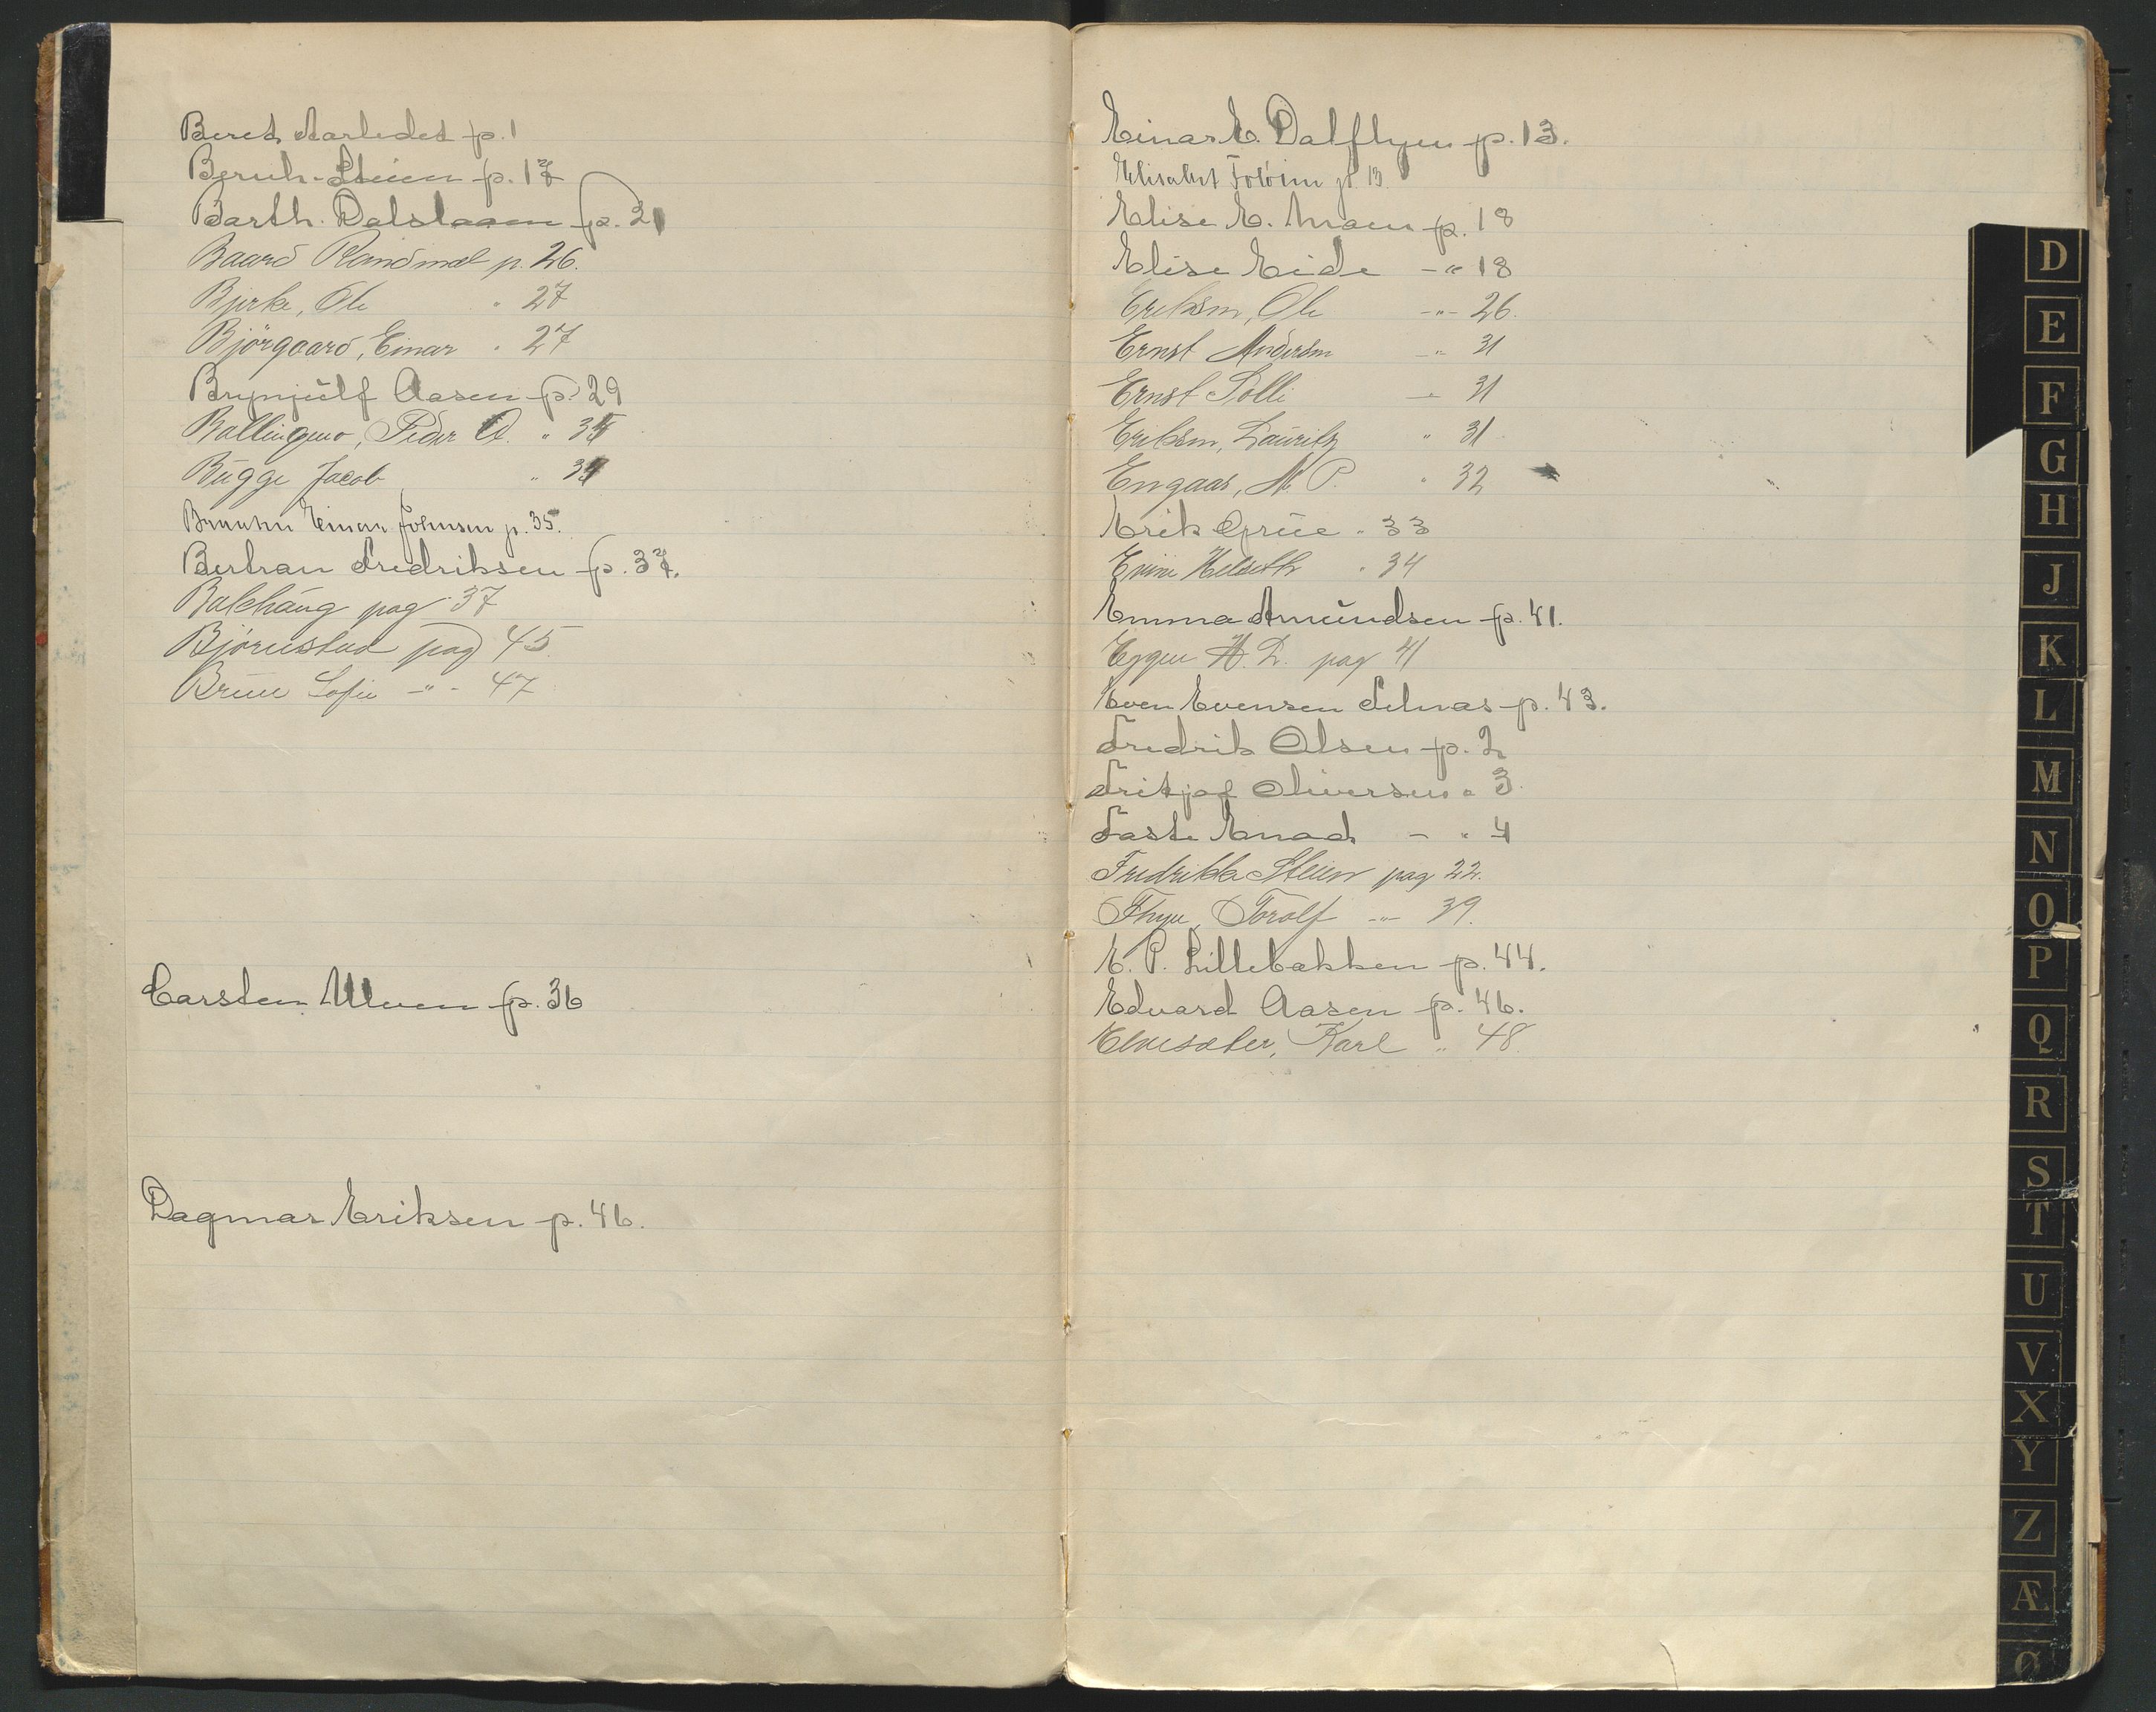 Beret Aarledet p. 1
Bernh. Steien p. 17
Barth. Dalslaaen p. 21
Baard Randmæl p. 26.
Bjerke, Ole " 27
Björgaard, Einar " 27
Brynjulf Aasen p. 29
Ballingmo, Peder O. " 34
Bugge Jacob " 34
Einar Johnsen p. 35.
Bertran Fredriksen p. 37.
Balchaug pag 37
Bjørnstad pag 45
Bruue Sofie -"- 47
Carsten Ulven p. 36
Dagmar Eriksen p. 46.
Einar E. Dalflyen p. 13.
Elisabet p. 13.
Elise E. Moen p. 18
Elise Eide -" 18
Eriksen, Ole -"- 26.
Ernst Andersen -"- 31
Ernst Solli -"- 31
Eriksen, Lauritz " 31
Engaas, M. P. " 32
Erik Grue " 33
Helseth " 34
Emma Amundsen p. 41.
Eggen H. L. pag 41
Even Evensen Selnas p. 43.
Fredrik Olsen p. 2
Fritjof Oliversen " 3.
Faste Enad - " 4
Fredrikke Steien pag 22.
Flyen, Torolf -"- 39.
E. P. Lillebakken p. 44.
Edvard Aasen p. 46.
Elvesæter, Karl " 48.
D
E
F
G
H
J
K
L
M
N
O
P
Q
R
S
T
U
V
X
Y
Z
Æ
Ø